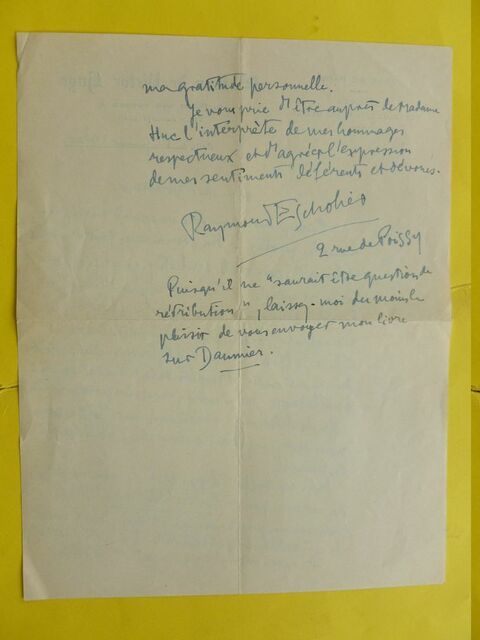 ma gratitude personnelle.
Je vous prie d'être auprès de Madame
Huc l'interprète de mes hommages
respectueux et d'agréer l'expression
de mes sentiments déférents et dévoués.
Raymond Escholier
2 rue de Poissy
Puisqu'il ne "saurait être question de
rétribution", laissez-moi du moins le
plaisir de vous envoyer mon livre
sur Daumier.